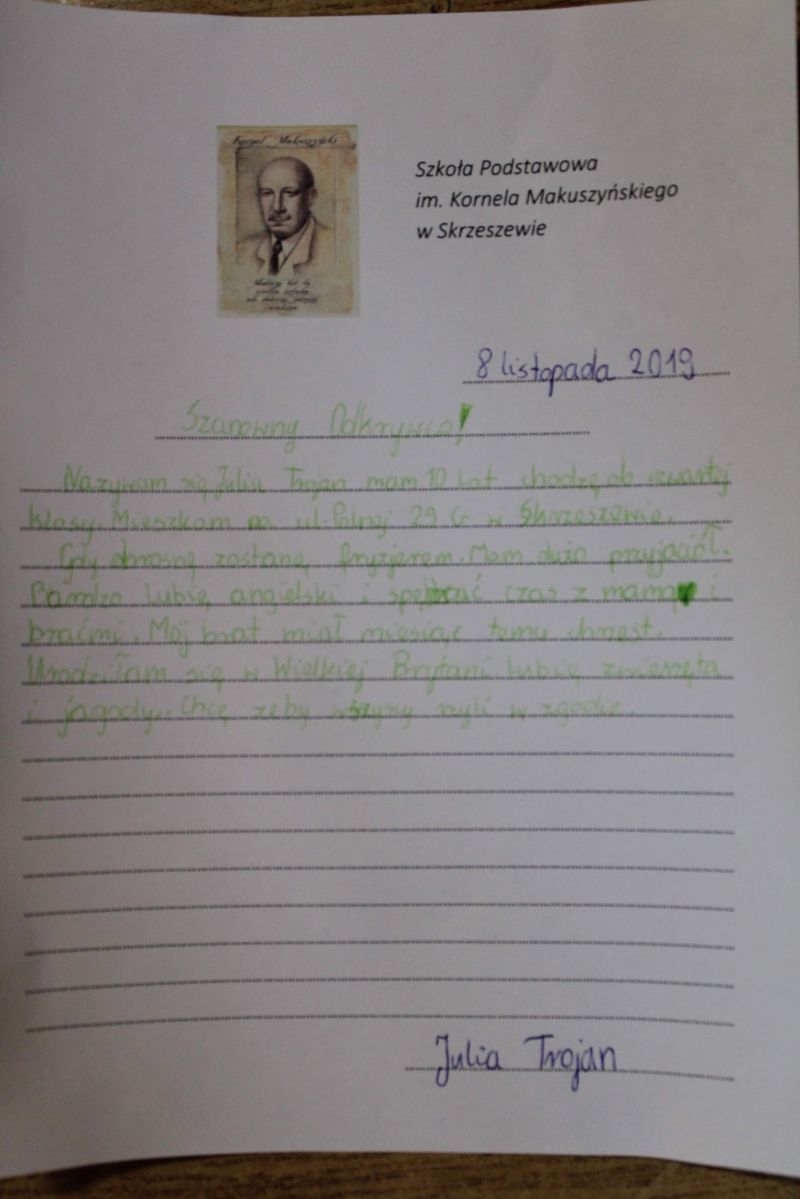 Kornel Makuszyński
Szkoła Podstawowa
im. Kornela Makuszyńskiego
w Skrzeszewie
8 listopada 2019
Szanowny Odkrywco!
Nazywam się Julia Trojan mam 10 lat chodzę do czwartej
klasy. Mieszkam na ul. Polnej 29 G w Skrzeszewie.
Gdy dorosnę zostanę fryzjerem. Mam dużo przyjaciół.
Bardzo lubię angielski i spędzać czas z mamą i
braćmi. Mój brat miał miesiąc temu chrzest.
Urodziłam się w Wielkiej Brytani lubię zwierzęta
i jagody. Chcę żeby wszyscy żyli w zgodzie.
Julia Trojan